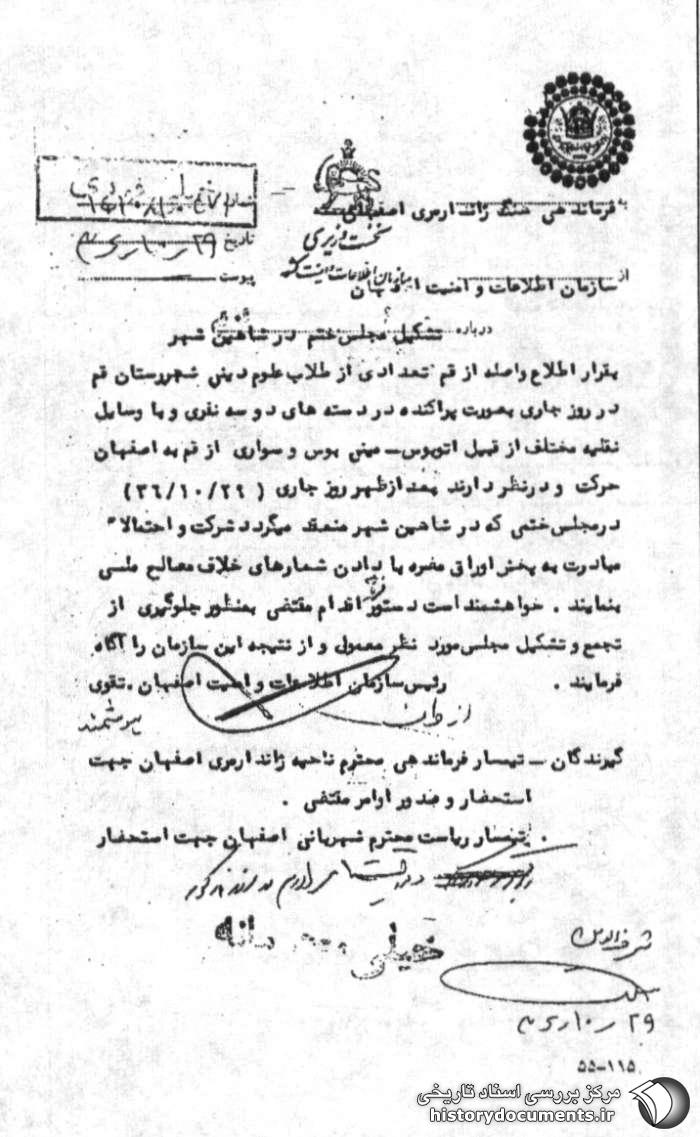 به فرماندهی هنگ ژاندارمری اصفهان
نخست وزیری
سازمان اطلاعات و امنیت کشور
شماره
تاریخ
پیوست
از سازمان اطلاعات و امنیت اصفهان
درباره تشکیل مجلس ختم در شاهین شهر
بقرار اطلاع واصله از قم تعدادی از طلاب علوم دینی شهرستان قم
در روز جاری بصورت پراکنده در دسته های دو سه نفری و با وسایل
نقلیه مختلف از قبیل اتوبوس - مینی بوس و سواری از قم به اصفهان
حرکت و در نظر دارند بعد از ظهر روز جاری (۳۶/۱۰/۲۹)
در مجلس ختمی که در شاهین شهر منعقد میگردد شرکت و احتمالا"
مبادرت به پخش اوراق مضره یا دادن شعارهای خلاف مصالح ملی
بنمایند . خواهشمند است دستور فرمائید اقدام مقتضی بمنظور جلوگیری از
تجمع و تشکیل مجلس مورد نظر معمول و از نتیجه این سازمان را آگاه
فرمایند . رئیس سازمان اطلاعات و امنیت اصفهان . تقوی
از طرف
گیرندگان - تیمسار فرماندهی محترم ناحیه ژاندارمری اصفهان جهت
استحضار و صدور اوامر مقتضی .
. تیمسار ریاست محترم شهربانی اصفهان جهت استحضار
خیلی محرمانه
۵۵-۱۱۵
مرکز بررسی اسناد تاریخی
historydocuments.ir